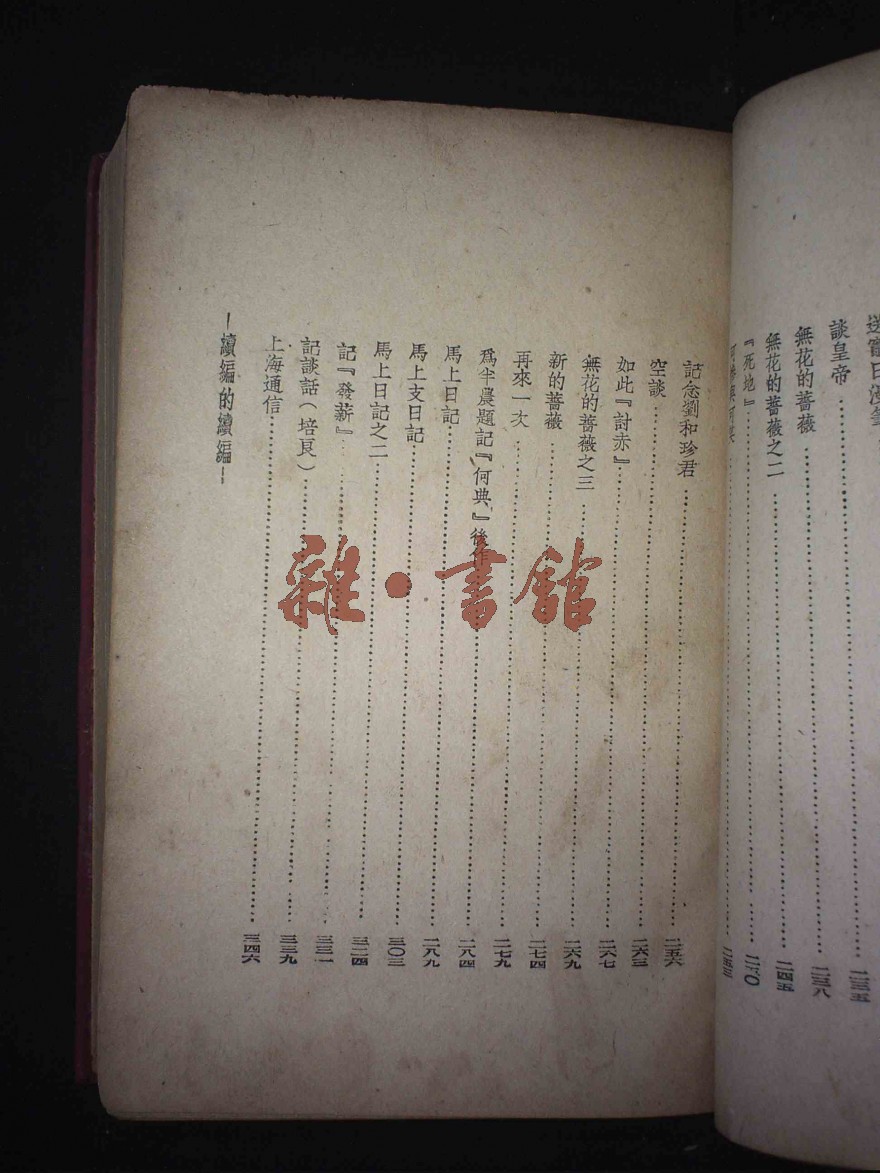 送竈日漫筆
談皇帝……二三五
無花的薔薇……二三八
無花的薔薇之二……二四五
『死地』……二五〇
可慘與可笑……二五三
記念劉和珍君……二五六
空談……二六三
如此『討赤』……二六七
無花的薔薇之三……二六九
新的薔薇……二七四
再來一次……二七九
爲半農題記『何典』後作……二八四
馬上日記……二八九
馬上支日記……三〇三
馬上日記之二……三二四
記『發薪』……三三一
記談話（培良）……三三九
上海通信……三四六
—續編的續編—
雜·書館